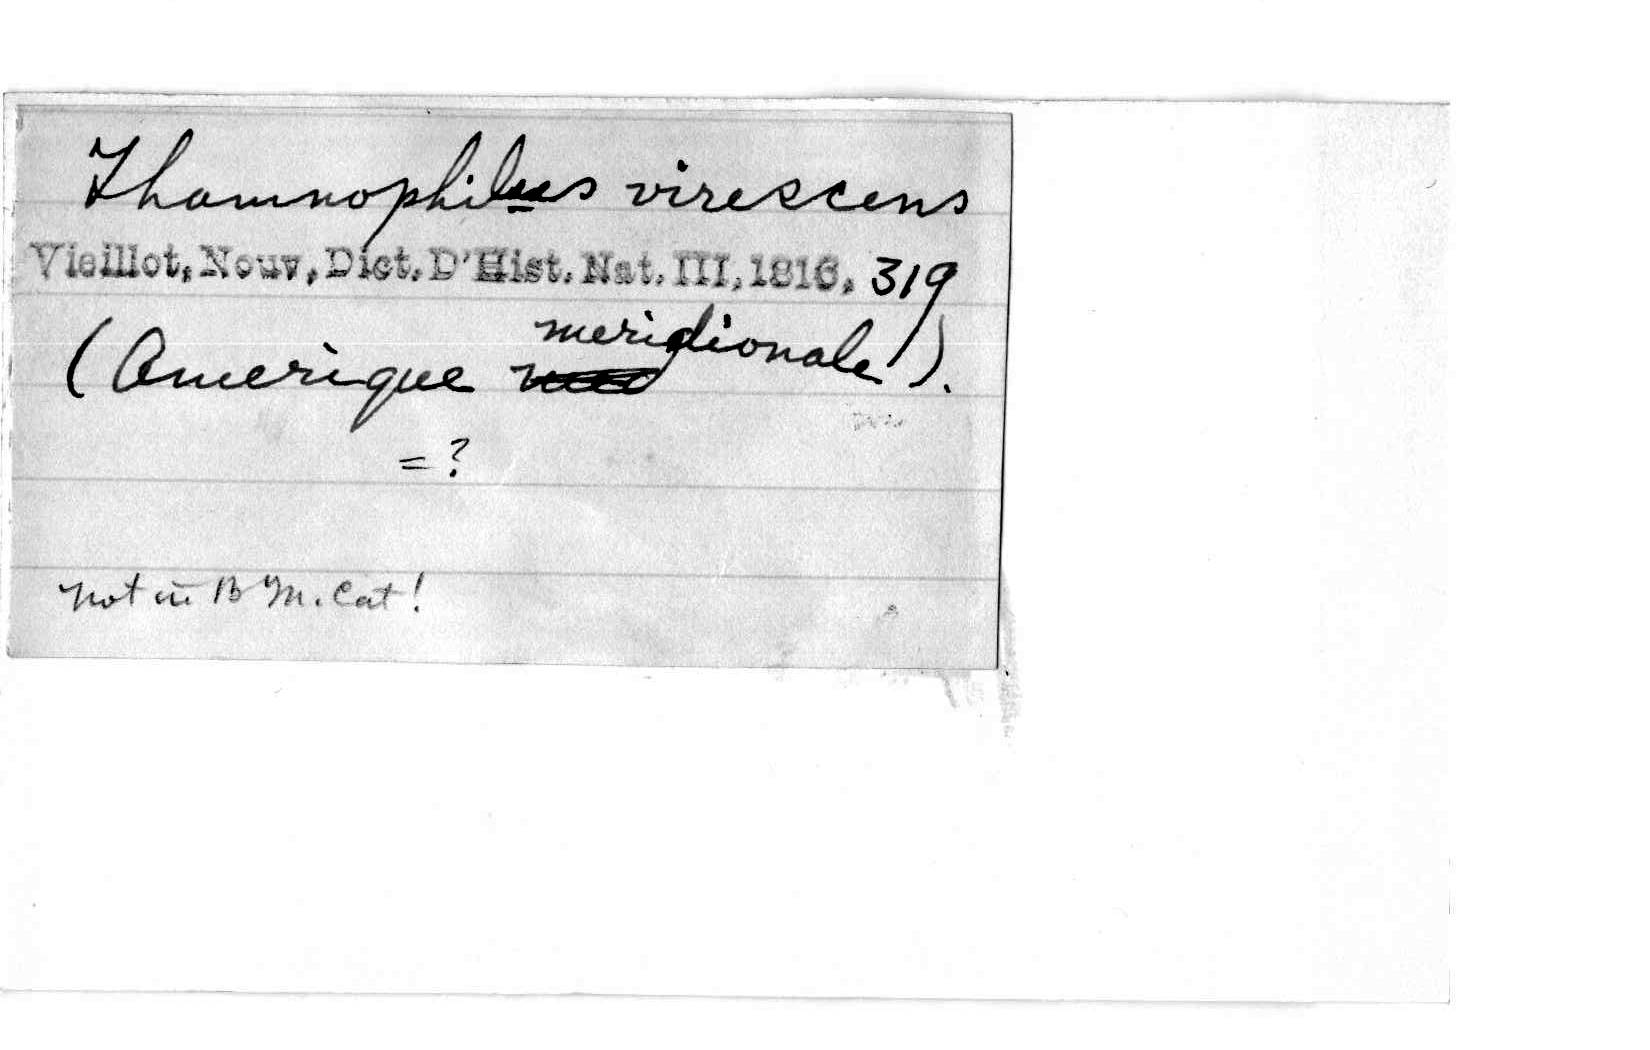 Thamnophilus virescens
Vieillot, Nouv. Dict. D'Hist. Nat. III, 1816, 319
(Amerique meridionale).
= ?
not in B M. Cat!